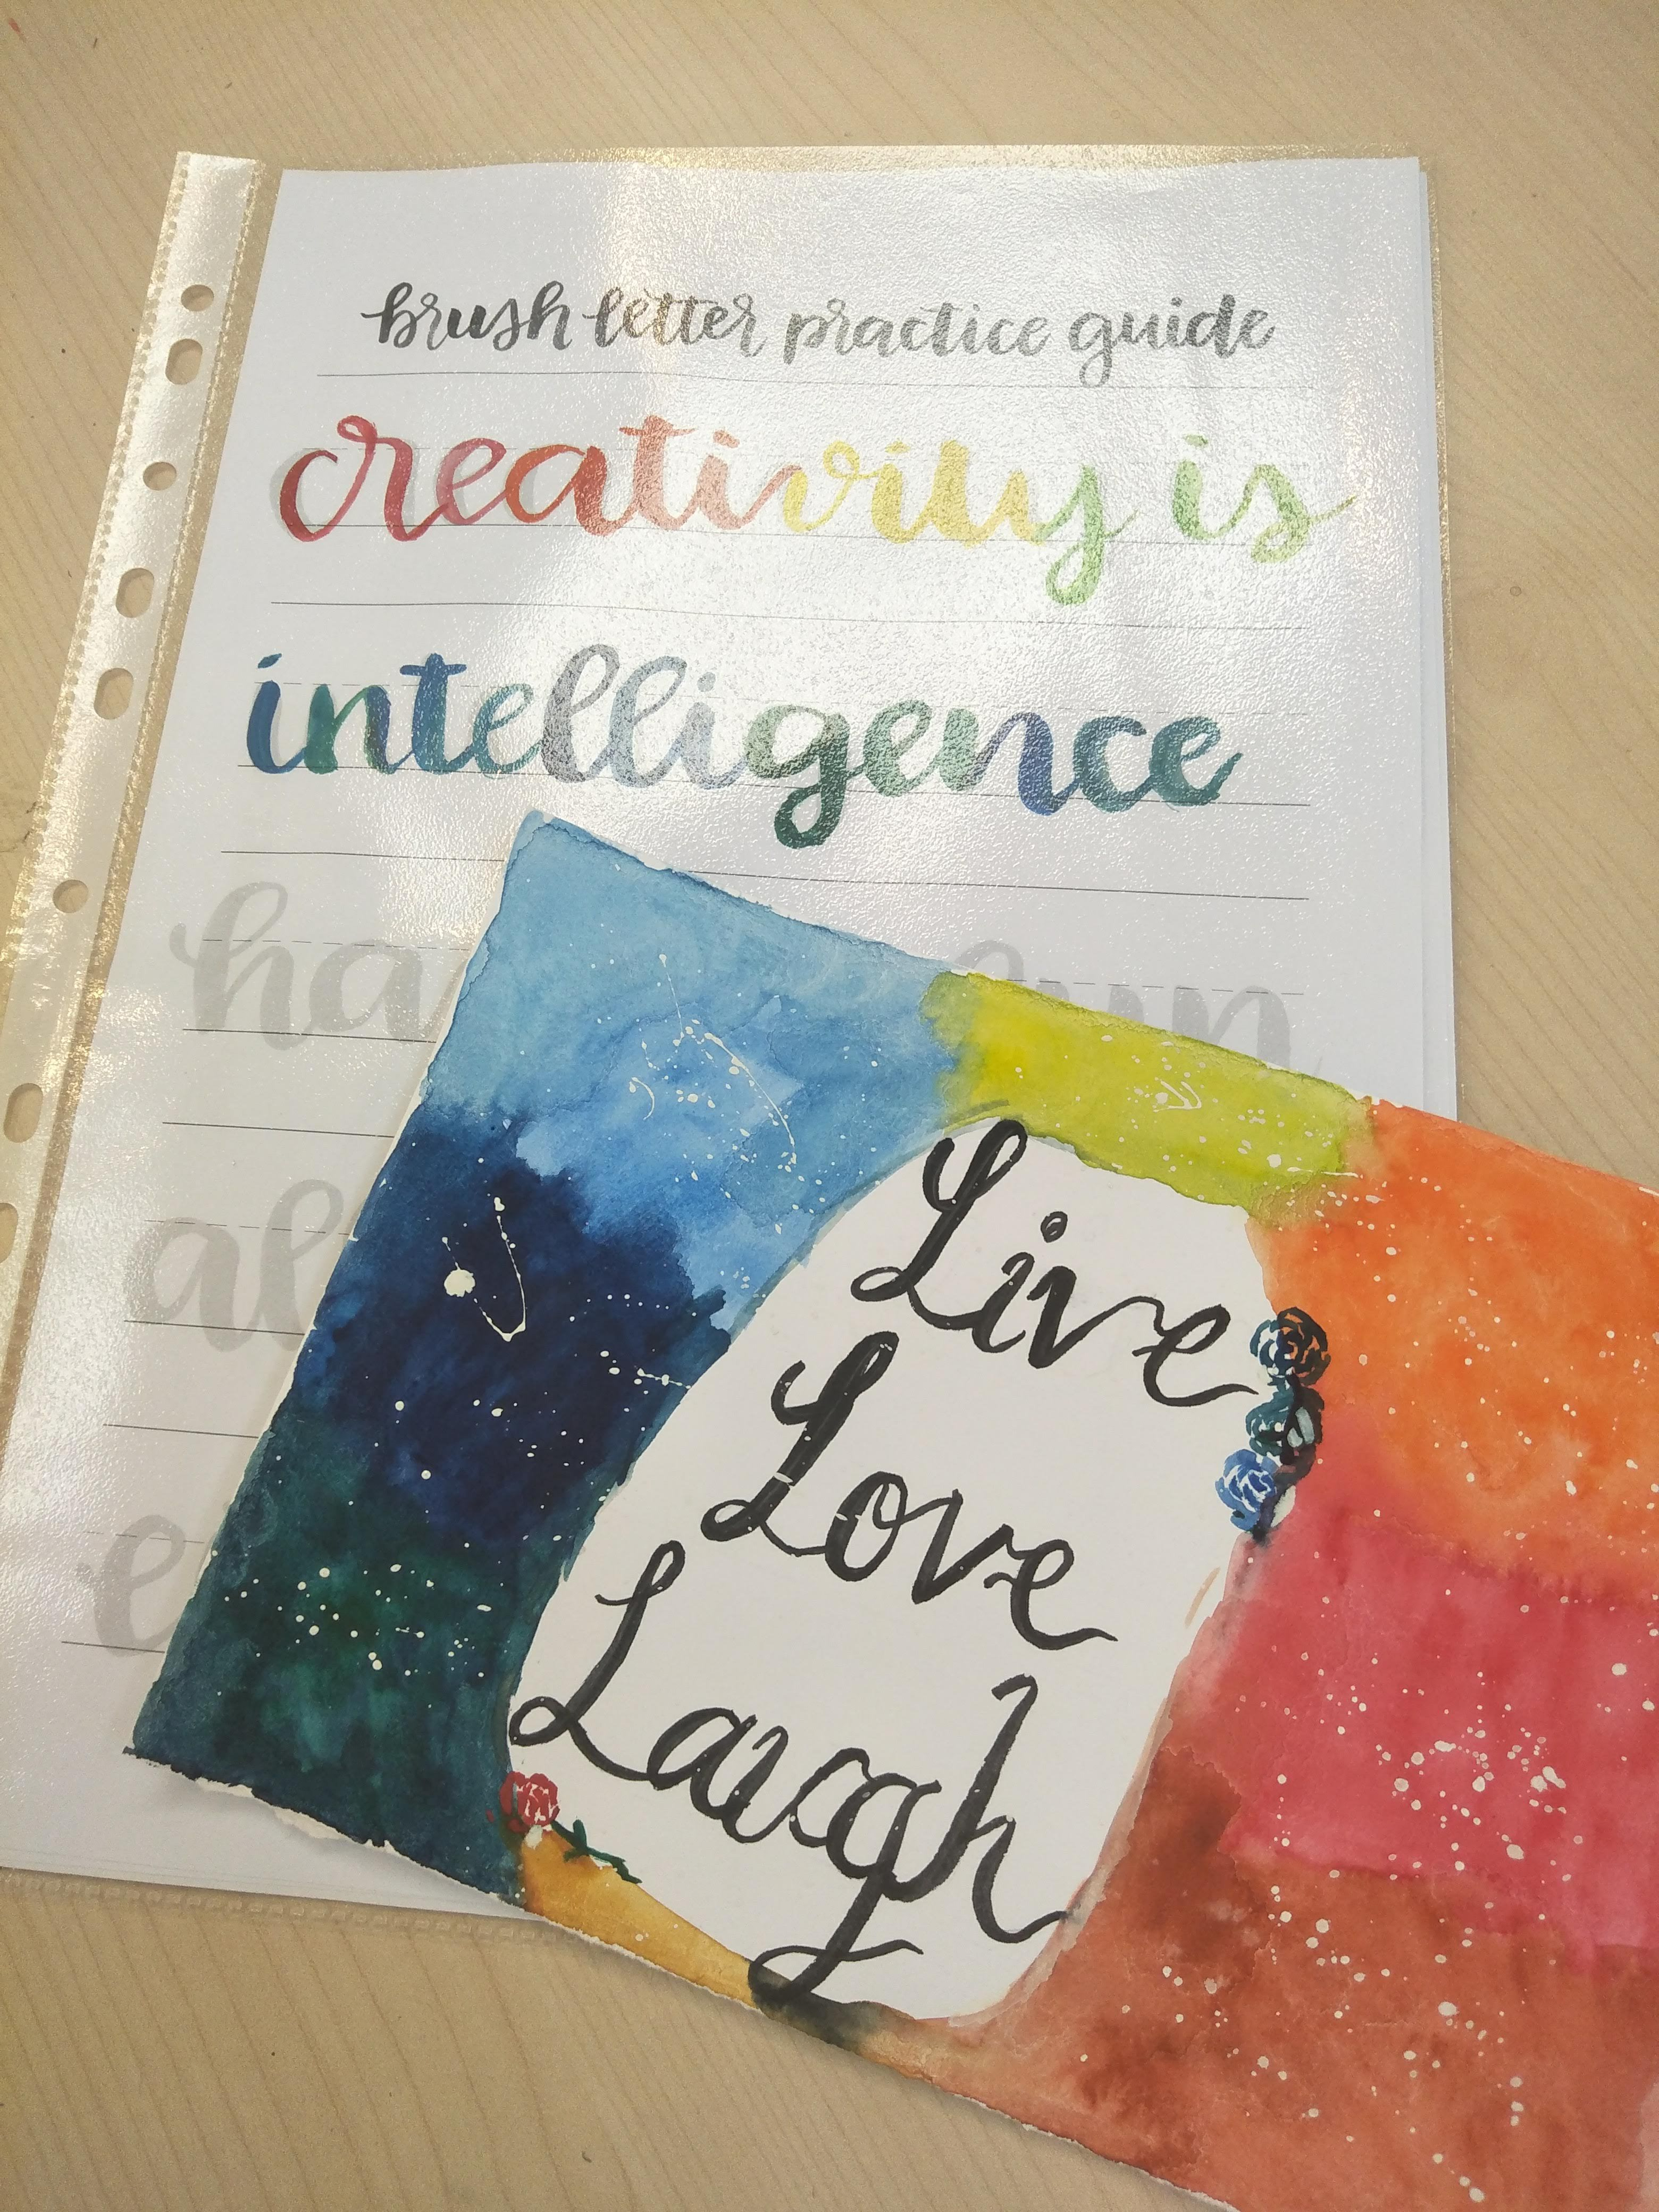 brush letter practice guide
creativity is
intelligence
Live
Love
Laugh